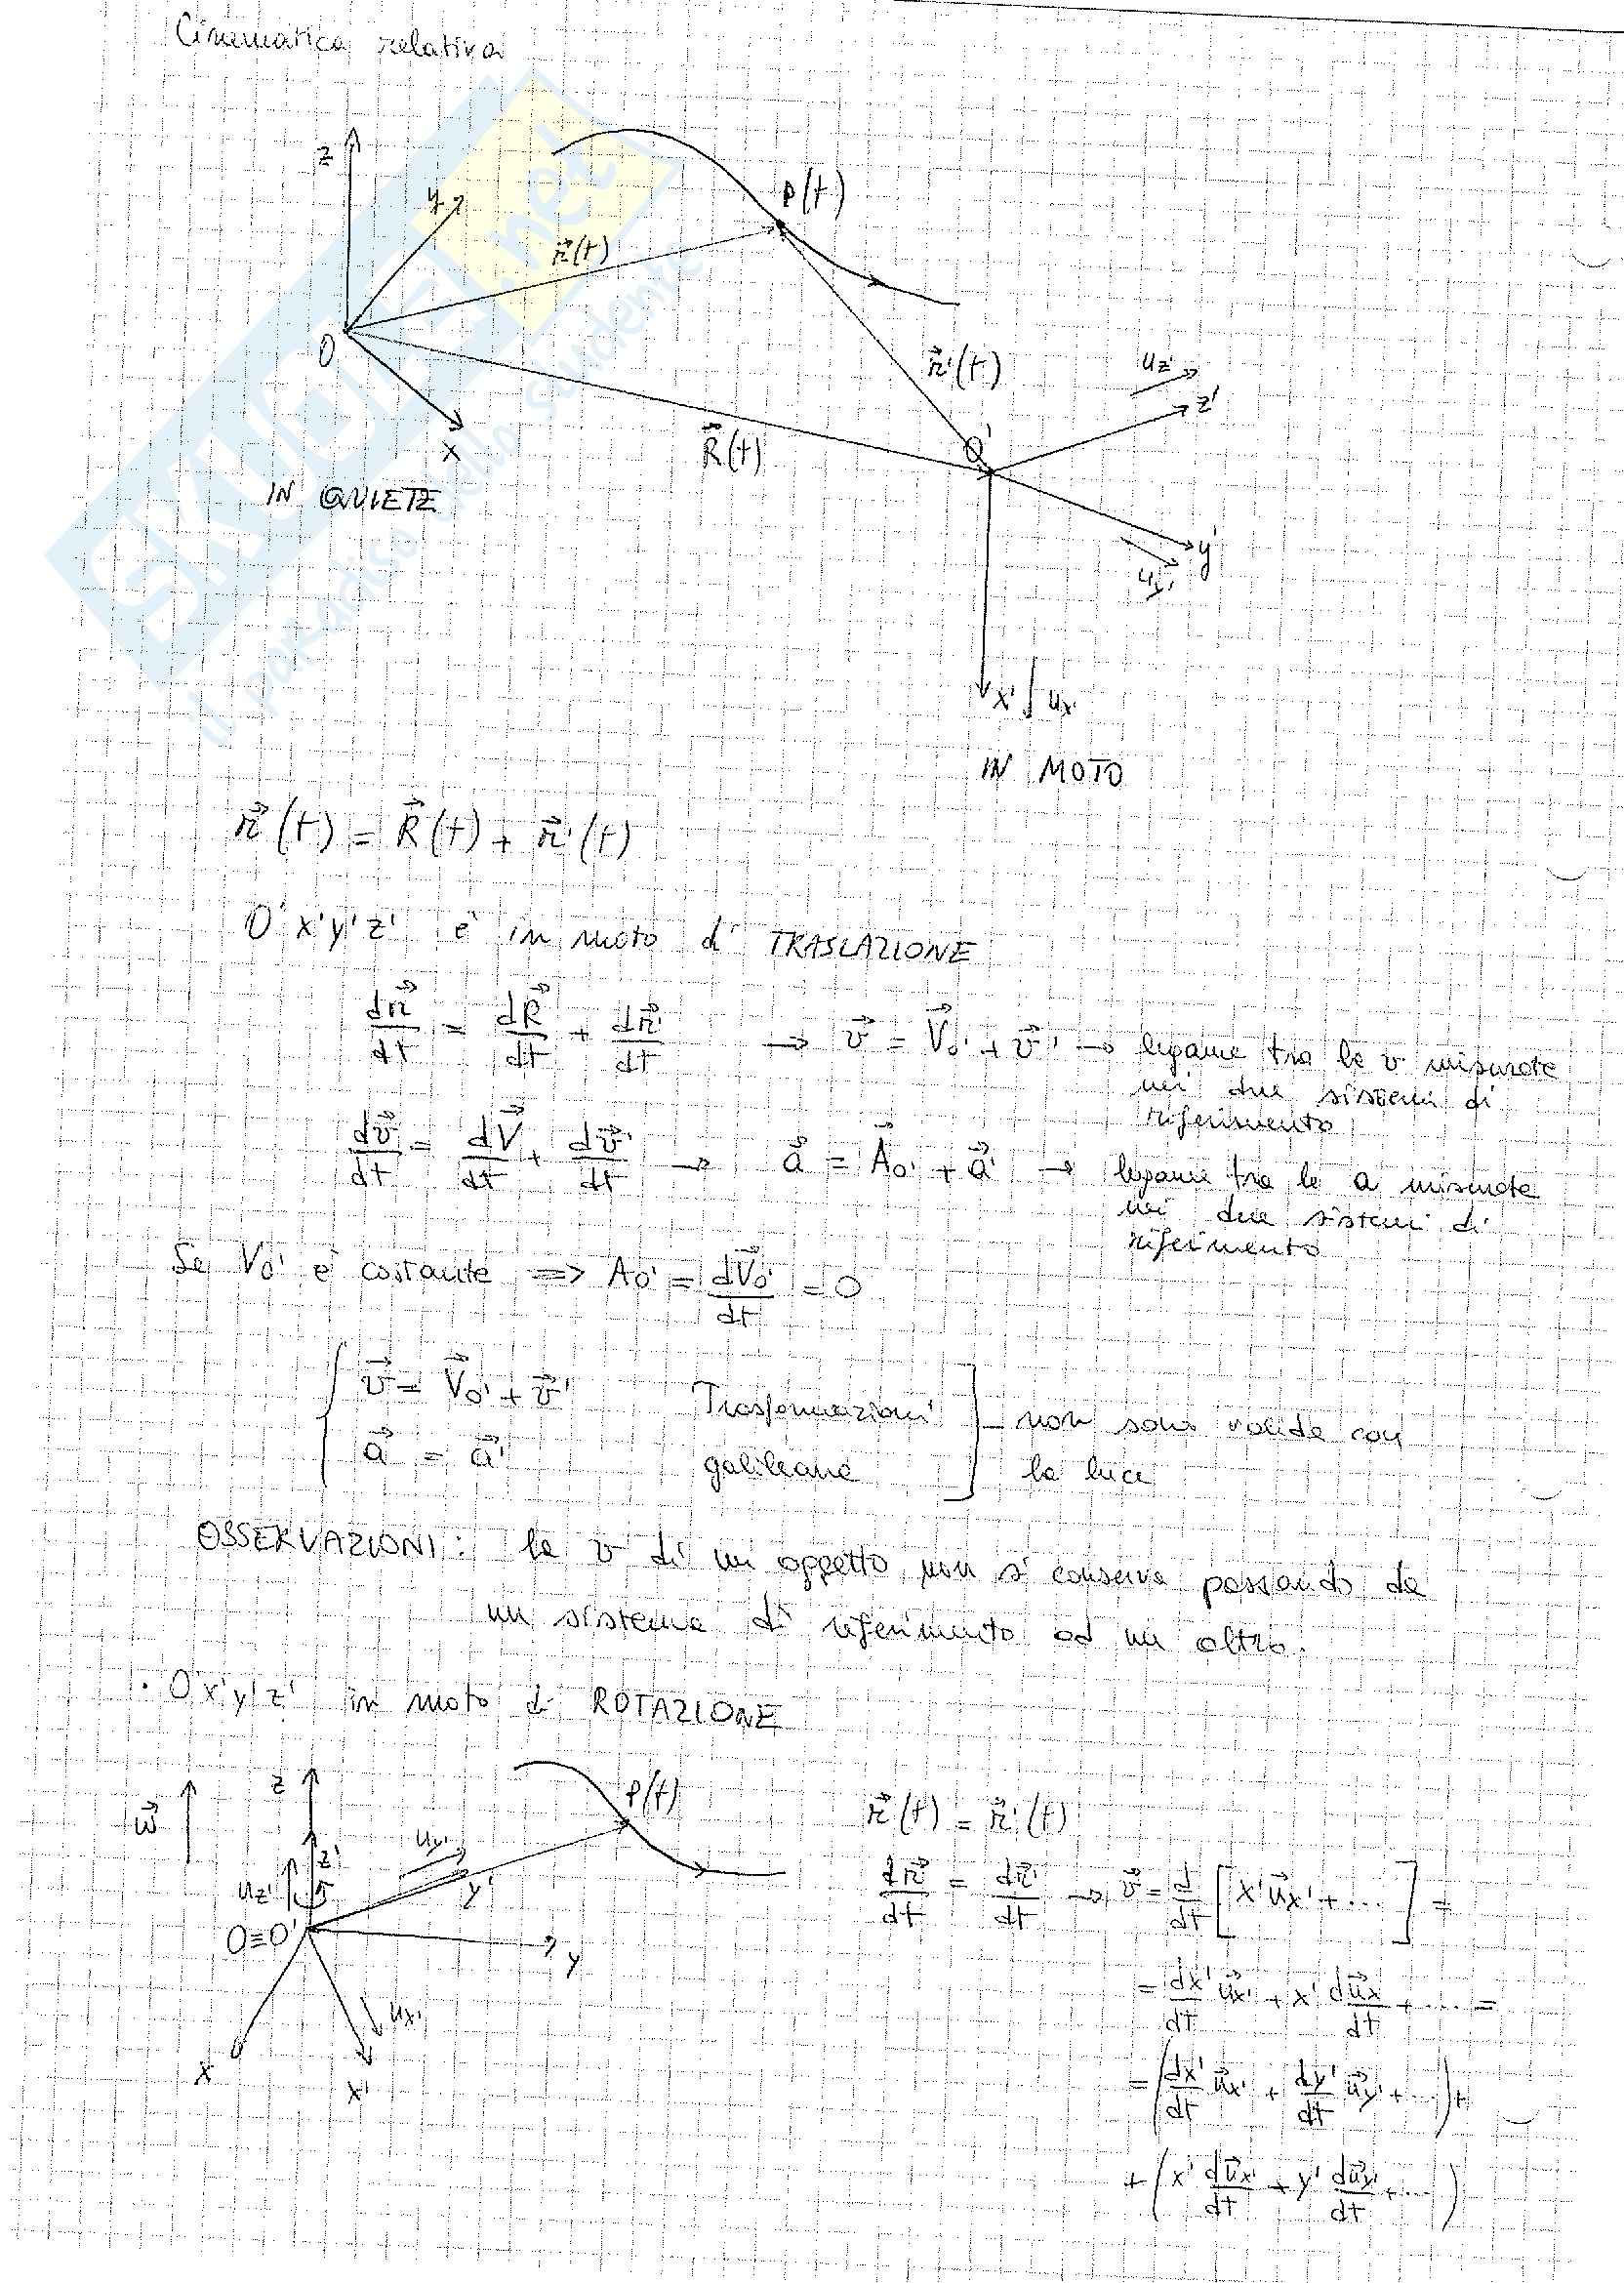 Cinematica relativa
z
y
r⃗(t)
P(t)
O
x
IN QUIETE
R⃗(t)
r⃗'(t)
O'
uz'
z'
y'
uy'
x'
ux'
IN MOTO
r⃗(t) = R⃗(t) + r⃗'(t)
O'x'y'z' è in moto di TRASLAZIONE
dr⃗/dt = dR⃗/dt + dr⃗'/dt → v⃗ = V⃗o' + v⃗' → legame tra le v misurate
nei due sistemi di
riferimento
dv⃗/dt = dV⃗/dt + dv⃗'/dt → a⃗ = A⃗o' + a⃗' → legame tra le a misurate
nei due sistemi di
riferimento
Se Vo' è costante ⟹ Ao' = dV⃗o'/dt = 0
v⃗ = V⃗o' + v⃗' Trasformazioni non sono valide con
a⃗ = a⃗' galileiane la luce
OSSERVAZIONI: la v di un oggetto non si conserva passando da
un sistema di riferimento ad un altro.
• O'x'y'z' in moto di ROTAZIONE
ω⃗
z
z'
uz'
uy'
y'
P(t)
O≡O'
y
x
x'
ux'
r⃗(t) = r⃗'(t)
dr⃗/dt = dr⃗'/dt → v⃗ = d/dt [x'u⃗x' + ... ] =
= dx'/dt u⃗x' + x' du⃗x/dt + .... =
= (dx'/dt u⃗x' + dy'/dt u⃗y' + ...) +
+ (x' du⃗x'/dt + y' du⃗y'/dt + ...)